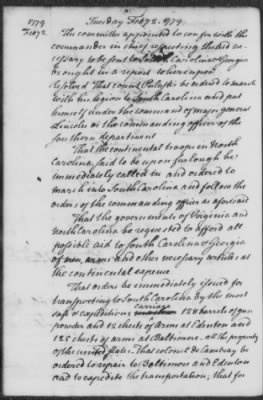 1779
Feb 2.
Tuesday Feb 2. 1779
The committee appointed to confer with the
commander in chief respecting the aid ne
cessary to be sent to South Carolina & Georgia
brought in a report whereupon
Resolved That count Pulaski be ordered to march
with his legion to South Carolina and put
himself under the command of major general
Lincoln or the commanding officer of the
Southern department
That the continental troops in North
Carolina said to be upon furlough be
immediately called in and ordered to
march into South Carolina and follow the
orders of the commanding officer as aforesaid
That the governments of Virginia and
North Carolina be requested to afford all
possible aid to South Carolina & Georgia
of men, arms and other necessary articles at
the continental expence
That order be immediately issued for
transporting to South Carolina by the most
safe & expeditious carriage 128 barrels of gun
powder and 12 chests of Arms at Edenton and
125 chests of arms at Baltimore, all the property
of the united states. That colonel de Cambray be
ordered to repair to Baltimore and Edenton
and to expedite the transportation; that for